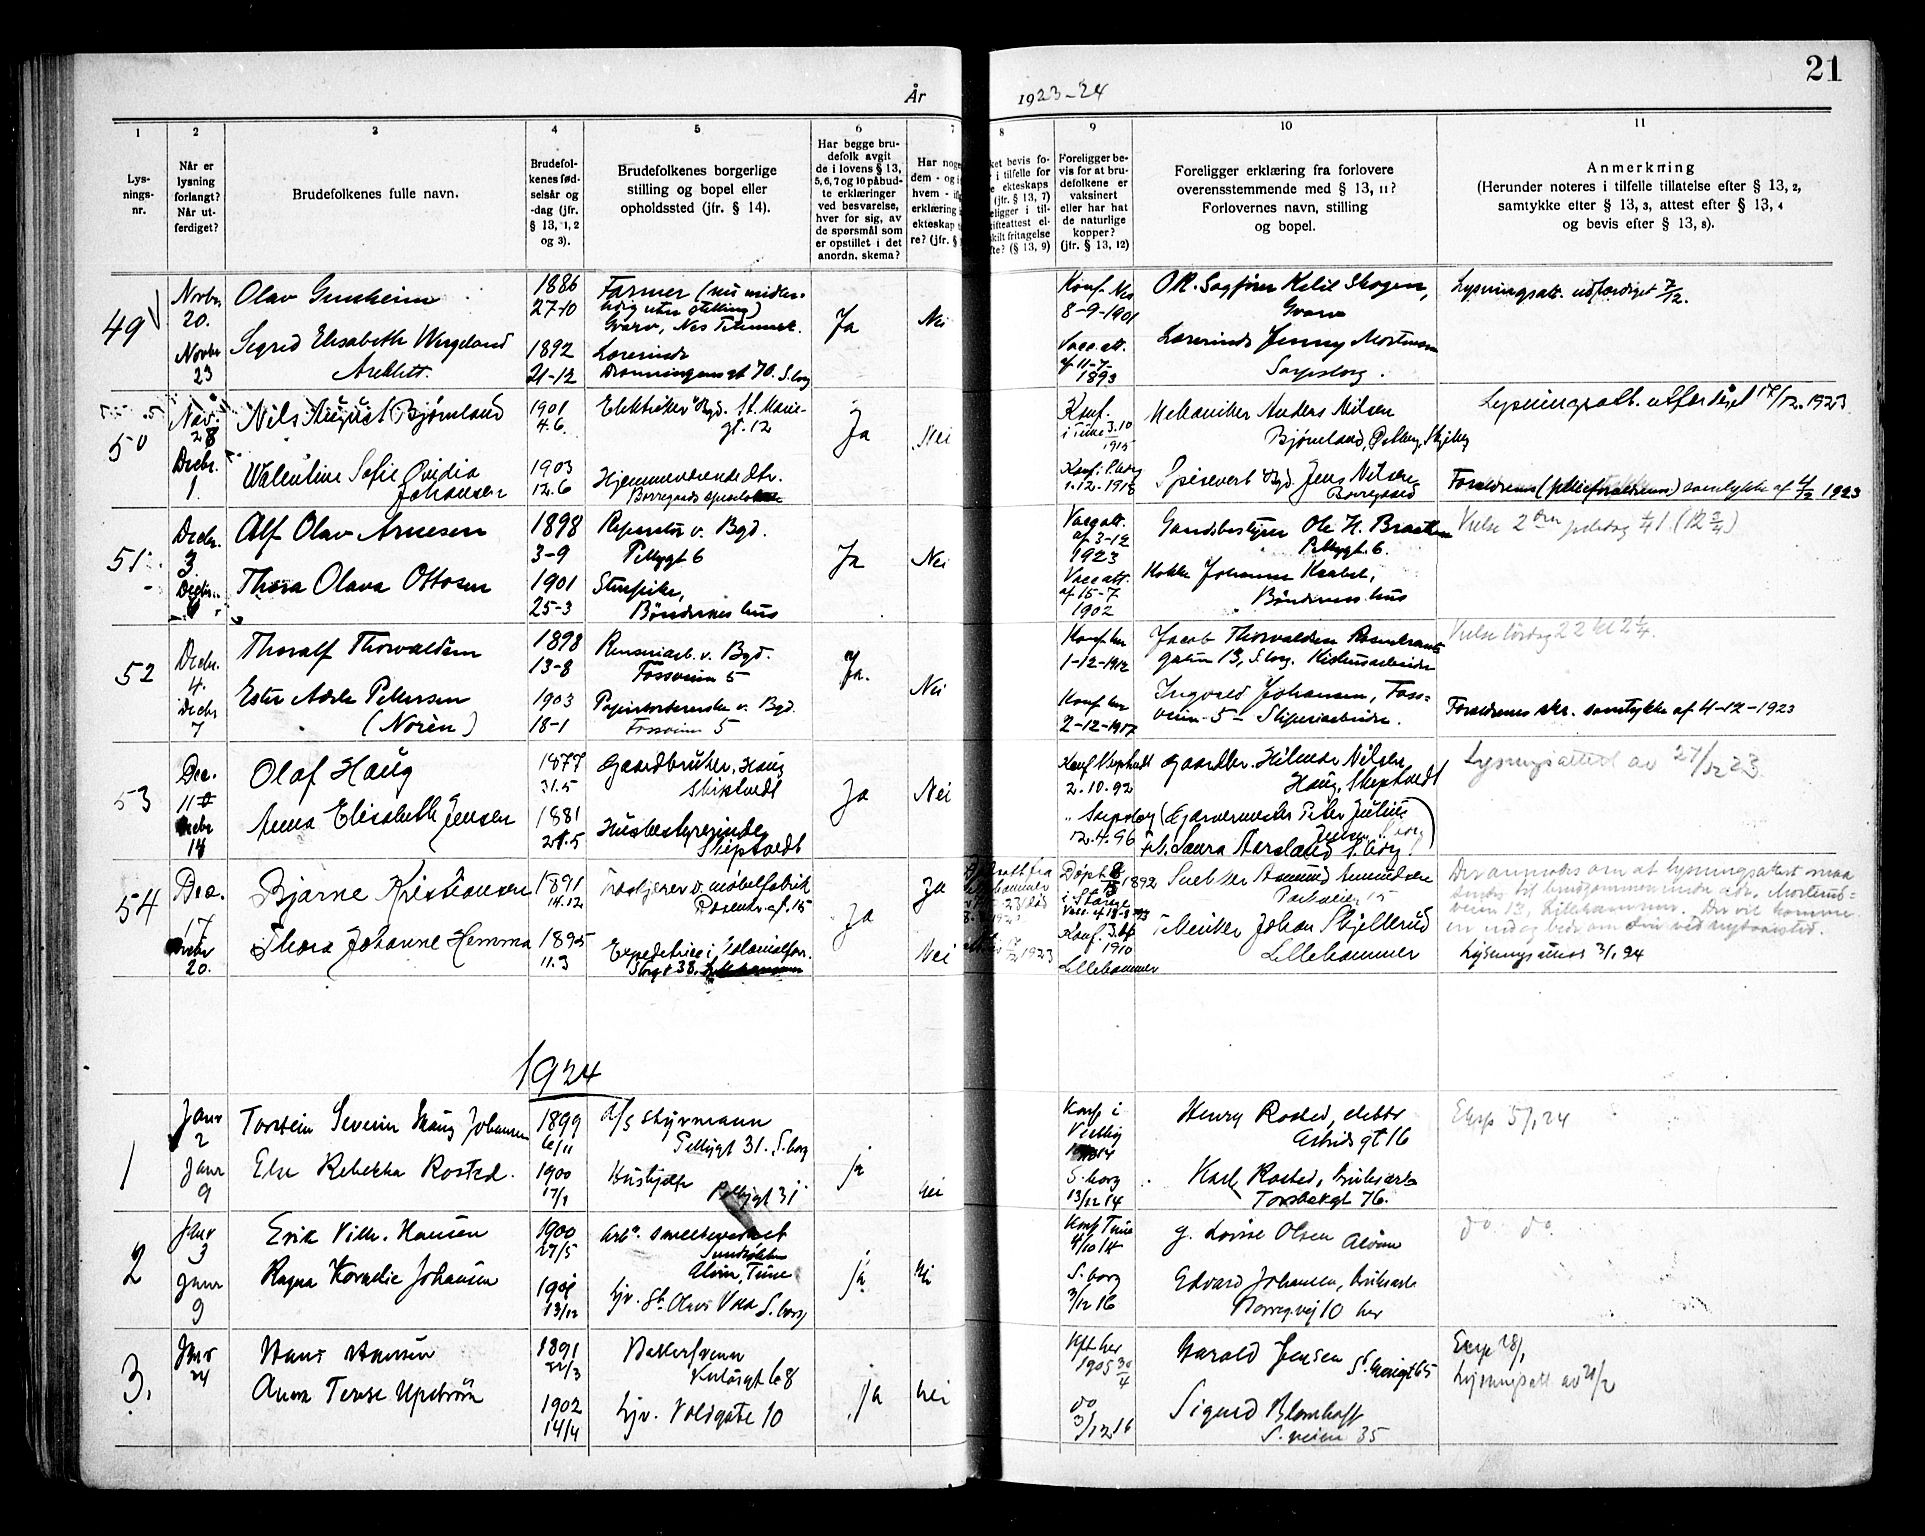 21
År 1923-24
1 2 3 4 5 6 7 8 9 10 11
Lys-
nings-
nr.
Når er
lysning
forlangt?
Når ut-
ferdiget?
Brudefolkenes fulle navn.
Brudefol-
kenes fød-
selsår og
-dag (jfr.
§ 13, 1, 2
og 3).
Brudefolkenes borgerlige
stilling og bopel eller
opholdssted (jfr. § 14).
Har begge bru-
defolk avgit
de i lovens § 13,
5, 6, 7 og 10 påbud-
te erklæringer
ved besvarelse,
hver for sig, av
de spørsmål som
er opstillet i det
anordn. skema?
Har noge
dem - og i
hvem -
erklæring
ekteskap
re? (jfr. §
ket bevis fo-
i tilfelle for
ekteskaps
(jfr. § 13, 7)
eligger i til-
ifteattest el-
skilt fritagelse
fte? (§ 13, 9)
Foreligger be-
vis for at bru-
defolkene er
vaksinert
eller har hat
de naturlige
kopper?
(jfr. § 13, 12)
Foreligger erklæring fra forlovere
overensstemmende med § 13, 11?
Forlovernes navn, stilling
og bopel.
Anmerkning
(Herunder noteres i tilfelle tillatelse efter § 13, 2,
samtykke efter § 13, 3, attest efter § 13, 4
og bevis efter § 13, 8).
49
Novbr.
20.
Novbr
23
Olav
Sigrid Elisabeth Wergeland
1886
27-10
1892
21-12
Farmer (nu midler-
tidig uten stilling)
Gvarv, Nes Telemark.
Lærerinde
Dronningens gt 70. S.borg
Ja
Nei
Konf. Nes
8-9-1901
Vacc. att.
af 11-7-
1893
O.R. Sagfører Ketil Skogen,
Gvarv
Lærerinde Jenny Mortensen
Sarpsborg.
Lysningsatt. udfærdiget 7/12.
50
Nov.
28
Decbr.
1.
Nils August Bjørnland
Walentine Sofie Ovidia
Johansen
1901
4.6.
1903
12.6
Elektriker Bgd. St. Marie-
gt. 12
Hjemmeværende dtr.
Ja
Nei
Konf.
i Tune 3.10
1915
Konf. S.borg
1.12.1918
Mekaniker Anders Nilsen
Bjørnland,
Spisevert Bgd. Jens Nilsen
Borregaard
Lysningsatt. utfærdiget 17/12. 1923
Forældrenes (pleieforældrenes) samtykke af 4/12 1923
51
Decbr.
3
Alf Olav Arnesen
Thora Olava Ottosen
1898
3-9
1901
25-3
Reparatør v. Bgd.
Pellygt 6
Stuepike,
Bøndernes hus
Ja
Nei
Vacc att.
af 3-12
1923
Vacc att.
af 15-7
1902
Gaardsbestyrer Ole H. Braathen
Pellygt. 6.
Kokke Johanne Knabel,
Bøndernes hus
Vielse 2den juledag
52
Decbr.
4.
Decbr
7
Thoralf Thorvaldsen
Ester Adele Pettersen
(Norén)
1898
13-8
1903
18-1
Renseriarb. v. Bgd.
Fossveien 5
v. Bgd.
Fossveien 5
Ja.
Nei
Konf. her
1-12-1912
Konf her
2-12-1917
Jacob Thorvaldsen Rosenkrants-
gaten 13, S.borg. Kisthusarbeider
Ingvald Johansen, Foss-
veien 5 - Sliperiarbeider.
Vielse lørdag 22
Forældrenes skr. samtykke af 4-12-1923
53
Dec.
11
14
Olaf Haug
Anna Elisabeth Jensen
1877
31.5
1881
21.5
Gaardbruker, Haug
Skiptvedt
Husbestyrerinde
Skiptvedt
Ja
Nei
Konf Skiptvedt
2.10.92
" Sarpsborg
12.4.96
Gaardbr. Hilmar Nilsen
Haug, Skiptvedt
(Garvermester Peter Julius
Jensen S.borg)
Laura Aarsland S.borg
Lysningsattest av 27/12 23.
54
Dec.
17
20.
Bjarne Kristiansen
Thora Johanne Hemma
1891
14.12
1895
11.3
v. møbelfabrik
Rosenkr. gt. 15
Expeditrice i Kolonialfor.
Storgt 38. Lillehammer
Ja
Ja
Nei
Døpt
1892
i Stange
Konf.
1910
Lillehammer
Snekker Asmund Amundsen
Tekniker Johan Skjellerud
Lillehammer
Der anmodes om at lysningsattest maa
sendes til brudgommen
veien 13, Lillehammer.
Lysningsattest 3/1 24
1924
1
Janr
2
Janr
9
Torstein Severin Haug Johansen
Else Rebekka Rosted.
1899
6/11
1900
17/1
d/s styrmann
Pellygt 31. S.borg
Hushjelp
Pellygt 31
ja
nei
Konf i
Vestby
1914
S.borg
13/12 14
Henry Rosted,
Astrids gt 16
Karl Rosted, bruksarb
Torsbekgt 76.
Eksp 5/1 24
2
Janr
3
Janr
9
Erik Vilh. Hansen
Ragna Kornelie Johansen
1900
27/5
1901
13/12
Arb. smelteverket
Sundløkken
Alvim, Tune
hjv. St. Olavs Vold S.borg
ja
nei
Konf Tune
4/10 14
S.borg
3/12 16
G. Lovise Olsen Alvim
Edvard Johansen, bruksarb
Borreg.vej 10 her
do do.
3.
Janr
24
Hans Hansen
Anna Terese Upström
1891
22/3
1902
14/4
Bakersvenn
hjv. Voldgate 10
ja
nei
Kft her
1905 30/4
do
3/12 16
Harald Jensen St. Mariegt 65
Sigurd Blomhoff
S.veien 35
Eksp 28/1
Lysningsatt av 21/2